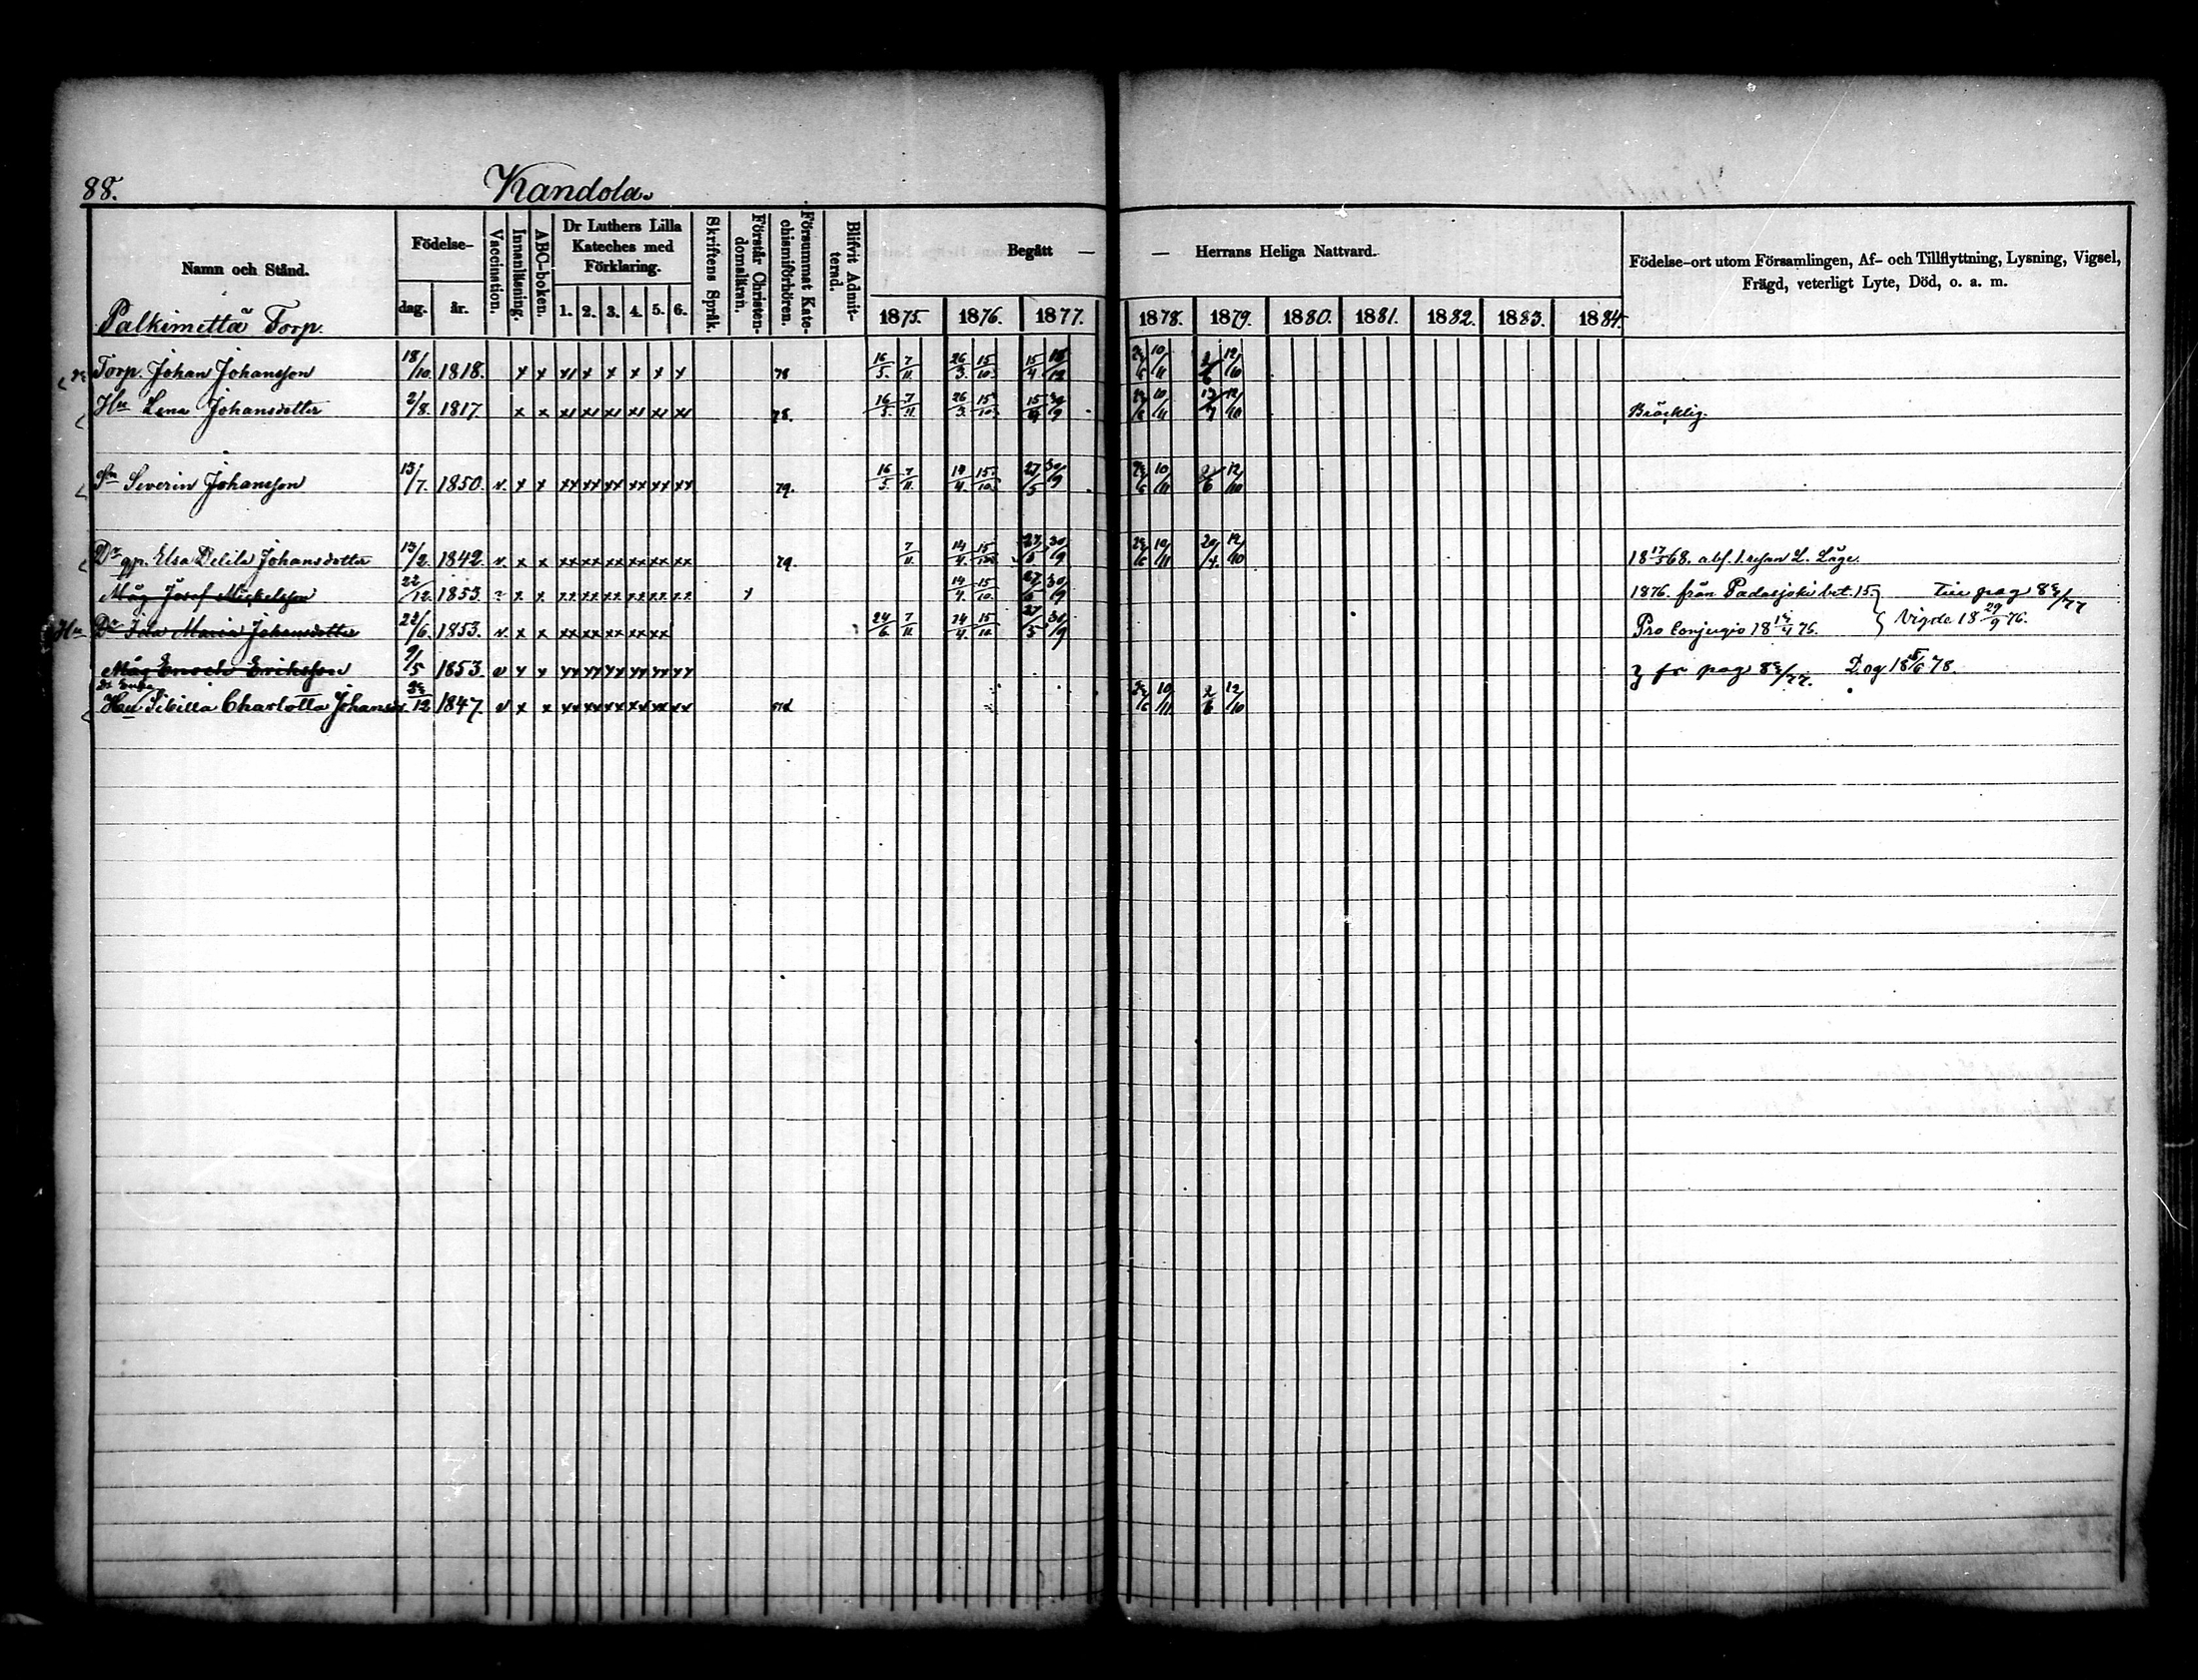 88. Kandola.
Namn och Stånd. Födelse- dag. år. Vaccination. Innanläsning. ABC-boken. Dr Luthers Lilla Kateches med Förklaring. 1. 2. 3. 4. 5. 6. Skriftens Språk. Förstår Christendomsläran. Försummat Katechismiförhören. Blifvit Admitterad. Begått — — Herrans Heliga Nattvard. Födelse-ort utom Församlingen, Af- och Tillflyttning, Lysning, Vigsel,
Frägd, veterligt Lyte, Död, o. a. m.
1875. 1876. 1877. 1878. 1879. 1880. 1881. 1882. 1883. 1884.
Palkimettä Torp.
Torp. Johan Johansson 18/10. 1818. x x x x x x x 78 16/5. 7/11. 26/3. 15/10. 15/4. 10/11 12/10
Hu Lena Johansdotter 2/8. 1817. x x 78. 16/5. 7/11. 26/3. 15/10. 10/11 12/10 Bräcklig.
Sn Severin Johansson 13/7. 1850. v. x x xx xx xx xx xx xx 79. 16/5. 7/11. 14/4. 15/10. 27/5 30/9 10/11 2/6 12/10
Dr qp. Elsa Delila Johansdotter 13/2. 1842. v. x x xx xx xx xx xx xx 79. 7/11. 14/4. 15/10. 27/5 30/9 10/11 20/4. 12/10 18 17/5 68. abs. 1. resan L. Läge.
Måg Josef Mickelsson 22/12. 1853. x x xx xx xx xx xx xx x 14/4. 15/10. 27/5 30/9 1876. från Padasjoki bet. 15
Hu Dr Ida Maria Johansdotter 22/6. 1853. v. x x xx xx xx xx xx 24/6. 7/11. 14/4. 15/10. 27/5 30/9 Pro Conjugio 18 76. Vigde 18 29/9 76.
Måg Enoch Eriksson 9/5 1853. v x x xx xx xx xx xx xx fr pag Dog 18 78.
Enka
Hu Sibilla Charlotta Johansd. 12 1847. v x x xx xx xx xx xx xx 10/11 2/6 12/10